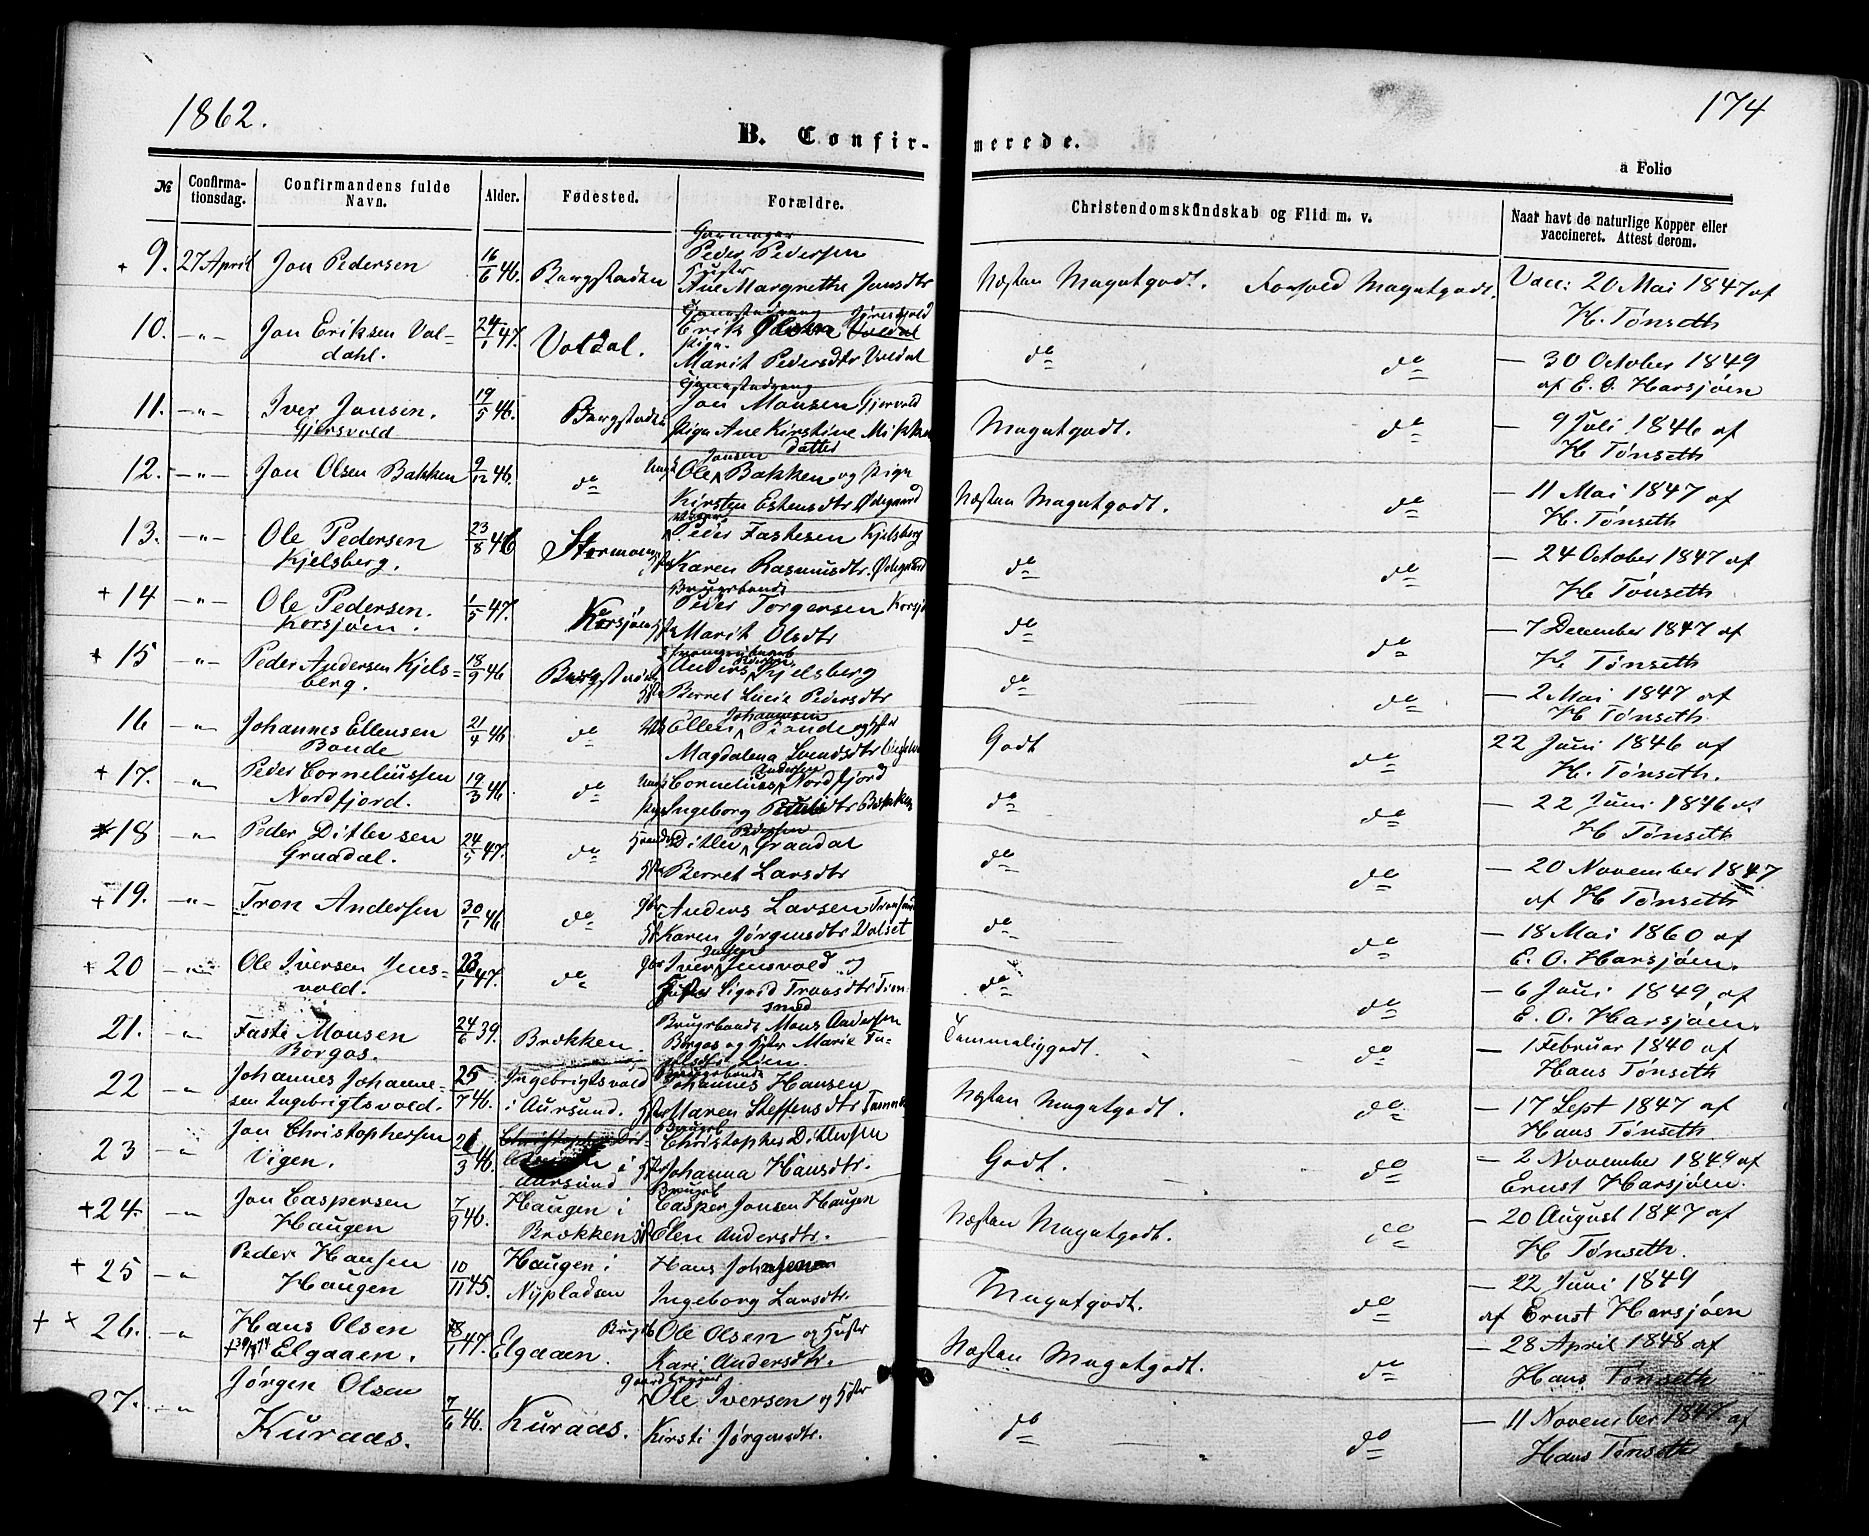 1862.
174
B. Confirmerede.
a Folio
№
Confirmationsdag.
Confirmandens fulde Navn.
Alder.
Fødested.
Forældre.
Christendomskundskab og Flid m. v.
Naar havt de naturlige Kopper eller vaccineret. Attest derom.
+ 9. 27 April Jon Pedersen 16/6 46. Bergstaden
Peder Pedersen
Hustr Ane Margrethe Jensdtr
Næsten Megetgodt. Forhold Megetgodt.
Vacc: 20 Mai 1847 af
H. Tønseth
10. -"- Jon Eriksen Valdahl. 24/1 47. Valdal.
Erik Olsen
Pige Marit Pedersdtr Valdal
do do
- 30 October 1849
af E. O. Harsjøen
11. -"- Iver Jonsen Gjersvold 19/5 46. Bergstaden
Jon Monsen Gjersvold
Pige Ane Kirstine Mikkelsdatter
Megetgodt. do
- 9 Juli 1846 af
H Tønseth
12. -"- Jon Olsen Bakken 9/12 46. do
Ole Jonsen Bakken og Pige
Kirsten Estensdtr Ødegaard
Næsten Megetgodt. do
- 11 Mai 1847 af
H. Tønseth
13. -"- Ole Pedersen Kjelsberg. 23/8 46 Stormoen
Peder Fastesen Kjelsberg
Karen Rasmusdtr. Ødegaard
do do
- 24 October 1847 af
H Tønseth
+ 14 -"- Ole Pedersen Korsjøen. 1/5 47. Korsjøen
Peder Torgersen Korsjø
Marit Olsdtr
do do
- 7 December 1847 af
H Tønseth
+ 15 -"- Peder Andersen Kjelsberg. 18/9 46 Bergstaden
Anders Kjelsberg
Berret Lucie Pedersdtr
do do
- 2 Mai 1847 af
H Tønseth
16 -"- Johannes Ellensen Bonde 21/4 46 do
Ellen Johannesen Bonde og Hstr
Magdalena Svendsdtr
Godt do
22 Juni 1846 af
H. Tønseth.
+ 17. " Peder Corneliussen Nordfjord. 19/3 46 do
Cornelius Andersen Nordfjord
Pige Ingeborg Bakken
do do
- 22 Juni 1846 af
H Tønseth
18 -"- Peder Ditlevsen Graadal. 24/5 47. do
Ditlev Pedersen Graadal
Berret Larsdtr
do do
- 20 November 1847
af H Tønseth
+ 19. -"- Tron Andersen 30/1 46 do
Anders Larsen
Karen Jørgensdtr Valset
do do
- 18 Mai 1860 af
E. O. Harsjøen.
+ 20 -"- Ole Iversen Jensvold. 23/1 47. do
Iver Jensvold og
Hustr Sigrid Tronsdtr
do do
- 6 Juni 1849 af
E. O. Harsjøen.
21. " Faste Monsen Borgos. 24/6 39. Brekken.
Brugsbonde Mons Andersen
Borgos og Hstr Marie
Temmeliggodt. do
- 1 Februar 1840 af
Hans Tønseth
22 " Johannes Johannesen Ingebrigtsvold. 25/7 46. Ingebrigtsvold i Aursund.
Brugsbonde Johannes Hansen
Maren Steffensdtr
Næsten Megetgodt. do
- 17 Sept 1847 af
Hans Tønseth
23 " Jon Christophersen Vigen. 21/3 46. i Aursund
Brugsb Christopher Ditlevsen
Johanna Hansdtr.
Godt. do
- 2 November 1849 af
Ernst Harsjøen.
+ 24. -" Jon Caspersen Haugen 7/9 46. Haugen i Brekken
Brugsb Casper Jonsen Haugen
Elen Andersdtr.
Næsten Megetgodt. do
- 20 August 1847 af
H Tønseth.
+ 25 -" Peder Hansen Haugen 10/11 45. Haugen i Nypladsen
Hans Johnsen
Ingeborg Larsdtr.
Megetgodt. do
- 22 Juni 1849
af Ernst Harsjøen
+ × 26. " Hans Olsen Elgaaen. 47. Elgaaen.
Brugsb Ole Olsen og Hustr
Kari Andersdtr.
Næsten Megetgodt. do
- 28 April 1848 af
Hans Tønseth
27. " Jørgen Olsen Kuraas. 7/6 46. Kuraas.
Ole Iversen og Hstr
Kirsti Jørgensdtr.
do do
- 11 November 1847 af
Hans Tønseth